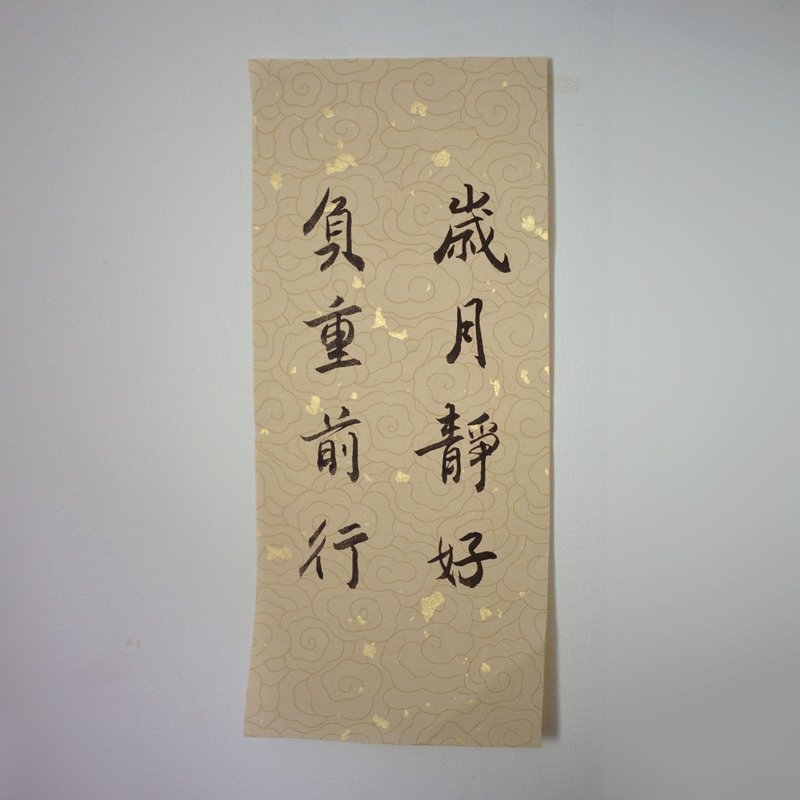 歲月靜好
負重前行